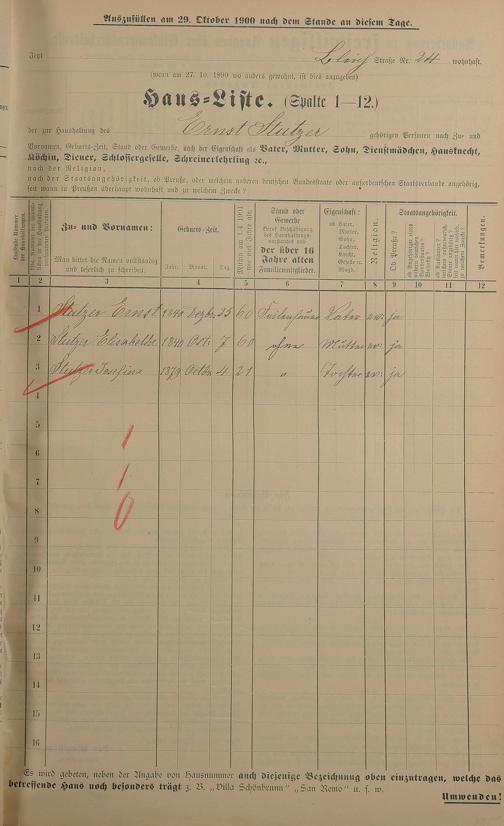 Auszufüllen am 29. Oktober 1900 nach dem Stande an diesem Tage.
Jetzt Straße Nr. 24 wohnhaft.
(wenn am 27. 10. 1890 wo anders gewohnt, ist dies anzugeben)
Haus-Liste. (Spalte 1—12.)
der zur Haushaltung des Ernst Stutzer gehörigen Personen nach Zu- und
Vornamen, Geburts-Zeit, Stand oder Gewerbe, nach der Eigenschaft als Vater, Mutter, Sohn, Dienstmädchen, Hausknecht,
Köchin, Diener, Schlossergeselle, Schreinerlehrling ec.,
nach der Religion,
nach der Staatsangehörigkeit, ob Preuße, oder welchem anderen deutschen Bundesstaate oder außerdeutschen Staatsverbande angehörig,
seit wann in Preußen überhaupt wohnhaft und zu welchem Zwecke?
Zu- und Vornamen:
Man bittet die Namen vollständig
und leserlich zu schreiben.
Geburts-Zeit.
Jahr. Monat. Tag.
Stand oder
Gewerbe
der über 16
Jahre alten
Familienmitglieder.
Eigenschaft:
ob Vater,
Mutter,
Sohn,
Tochter,
Köchin,
Knecht,
Geselle u.
Magd.
Religion.
Staatsangehörigkeit.
Ob Preuße?
Bemerkungen.
1 2 3 4 5 6 7 8 9 10 11 12
1 Stutzer Ernst 1840 Dezbr 25 60 Feilenhauer Vater ev. ja
2 Stutzer Elisabetha 1840 Oct. 7 60 ohne Mutter ev. ja
3 Stutzer Josefine 1879 Octbr 4 21 " Tochter ev. ja
4
5
1
6
1
7
8
0
9
10
11
12
13
14
15
16
Es wird gebeten, neben der Angabe von Hausnummer auch diejenige Bezeichnung oben einzutragen, welche das
betreffende Haus noch besonders trägt z. B. „Villa Schönbrunn" „San Remo" u. s. w.
Umwenden!